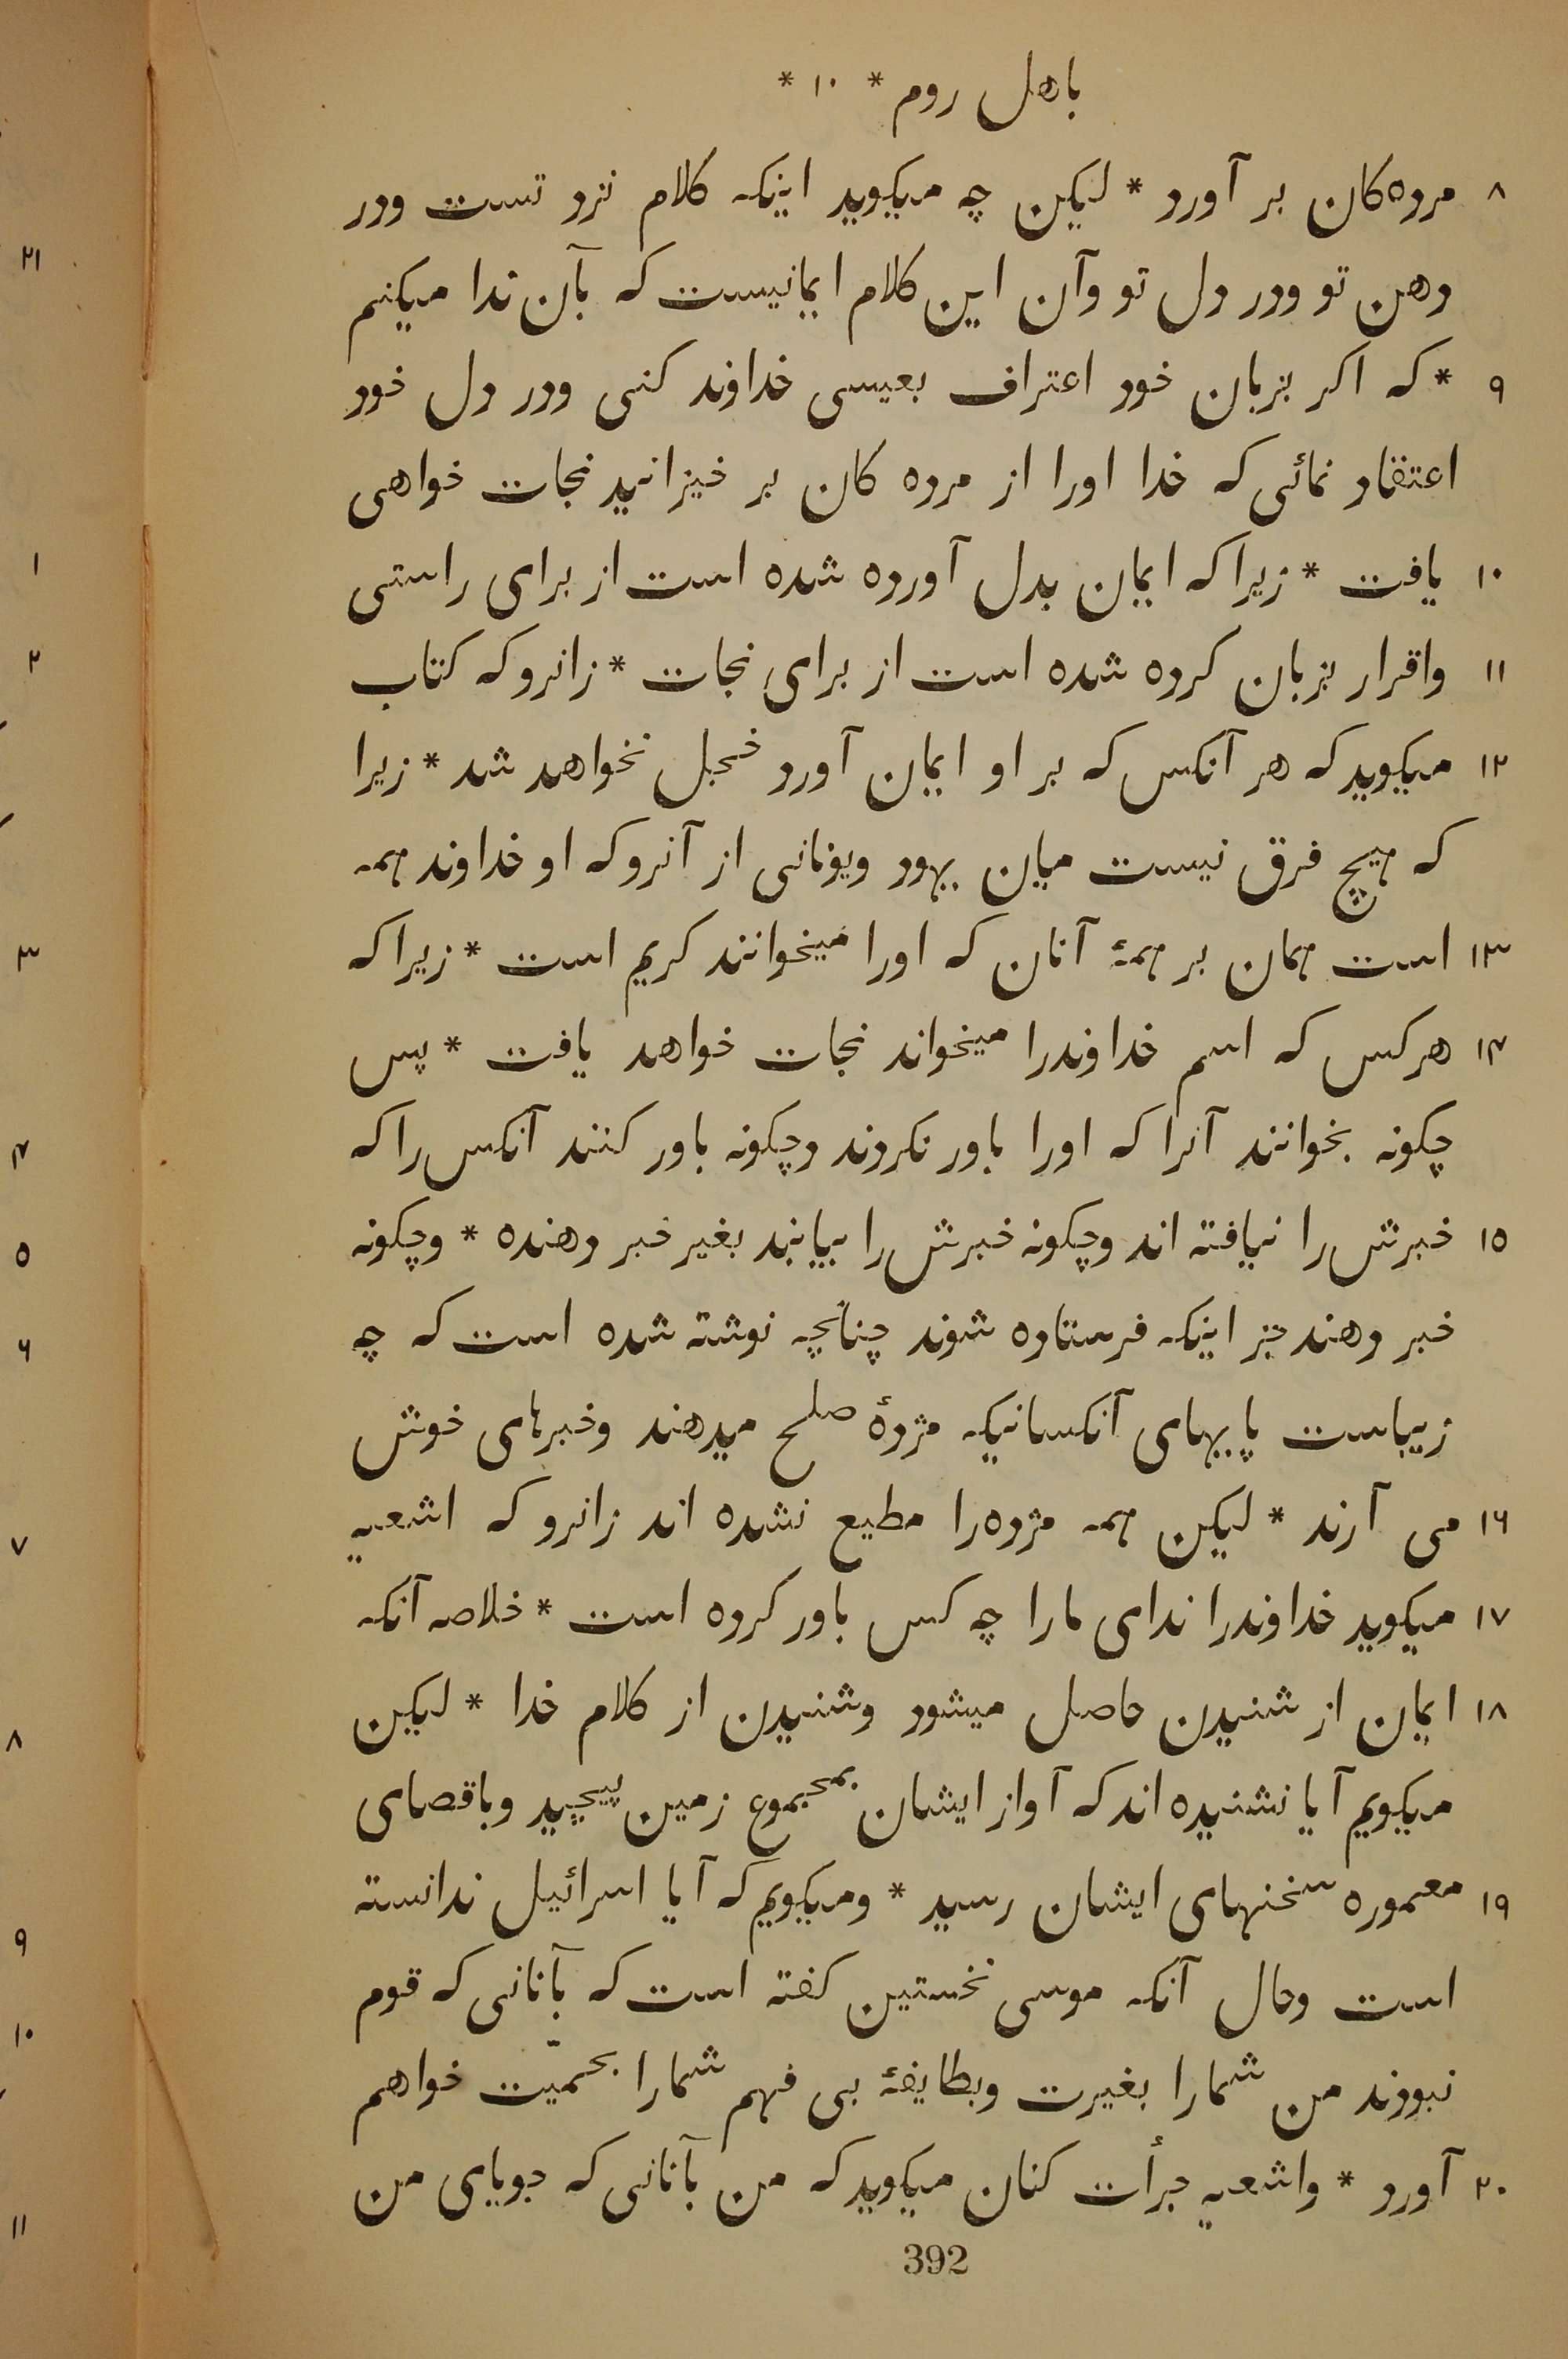 باهل روم * ۱۰ *
۸ مرده‌كان بر آورد * ليكن چه ميكويد اينكه كلام نزد تست ودر
دهن تو ودر دل تو وآن اين كلام ايمانيست كه بآن ندا ميكنيم
۹ * كه اكر بزبان خود اعتراف بعيسى خداوند كنى ودر دل خود
اعتقاد نمائى كه خدا اورا از مرده كان بر خيزانيد نجات خواهى
۱۰ يافت * زيرا كه ايمان بدل آورده شده است از براى راستى
۱۱ واقرار بزبان كرده شده است از براى نجات * زانرو كه كتاب
۱۲ ميكويد كه هر آنكس كه بر او ايمان آورد خجل نخواهد شد * زيرا
كه هيچ فرق نيست ميان يهود ويونانى از آنرو كه او خداوند همه
۱۳ است همان بر همۀ آنان كه اورا ميخوانند كريم است * زيرا كه
۱۴ هر كس كه اسم خداوندرا ميخواند نجات خواهد يافت * پس
چكونه بخوانند آنرا كه اورا باور نكردند وچكونه باور كنند آنكس را كه
۱۵ خبرش را نيافته اند وچكونه خبرش را بيابند بغير خبر دهنده * وچكونه
خبر دهند جز اينكه فرستاده شوند چنانچه نوشته شده است كه چه
زيباست پايهاى آنكسانيكه مژدۀ صلح ميدهند وخبرهاى خوش
۱۶ مى آرند * ليكن همه مژده‌را مطيع نشده اند زانرو كه اشعيه
۱۷ ميكويد خداوندرا نداى مارا چه كس باور كرده است * خلاصه آنكه
۱۸ ايمان از شنيدن حاصل ميشود وشنيدن از كلام خدا * ليكن
ميكويم آيا نشنيده اند كه آواز ايشان بمجموع زمين پيچيد وباقصاى
۱۹ معموره سخنهاى ايشان رسيد * وميكويم كه آيا اسرائيل ندانسته
است وحال آنكه موسى نخستين كفته است كه بآنانى كه قوم
نبودند من شمارا بغيرت وبطايفۀ بى فهم شمارا بحميّت خواهم
۲۰ آورد * واشعيه جرأت كنان ميكويد كه من بآنانى كه جوياى من
392
۲۱
۱
۲
۳
۴
۵
۶
۷
۸
۹
۱۰
۱۱